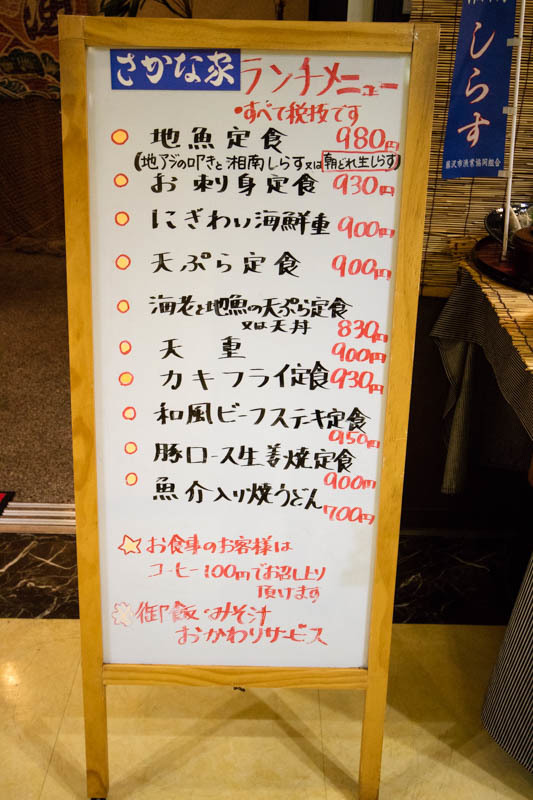 さかな家 ランチメニュー
•すべて税抜です
地魚定食 980円
(地アジの叩きと湘南しらす又は朝どれ生しらす)
お刺身定食 930円
にぎわい海鮮重 900円
天ぷら定食 900円
海老と地魚の天ぷら定食
又は天丼 830円
天重 900円
カキフライ定食 930円
和風ビーフステキ定食
950円
豚ロース生姜焼定食
900円
魚介入り焼うどん
700円
お食事のお客様は
コーヒー100円でお召し上り
頂けます
御飯・みそ汁
おかわりサービス
しらす
藤沢市漁業協同組合